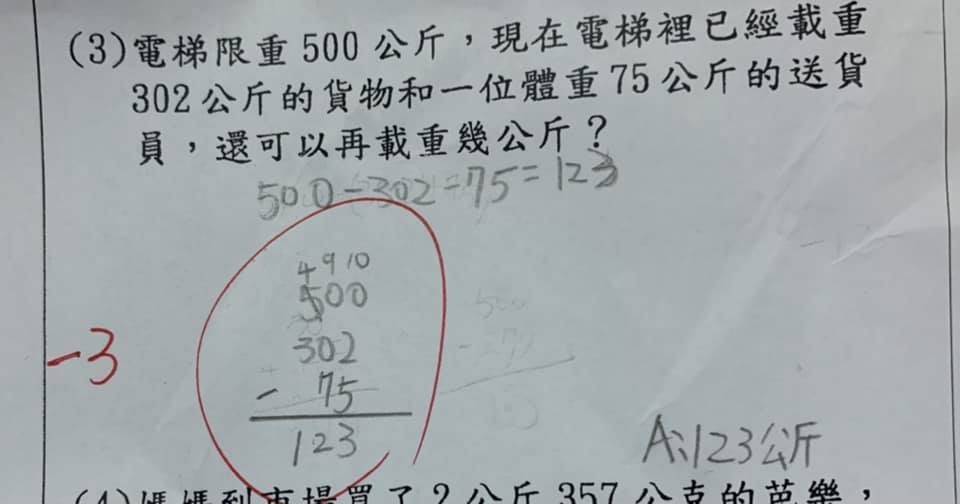 (3)電梯限重500公斤，現在電梯裡已經載重
302公斤的貨物和一位體重75公斤的送貨
員，還可以再載重幾公斤？
500-302-75=123
4910
500
302
- 75
123
-3
A:123公斤
(4)媽媽到市場買了2公斤357公克的芭樂，